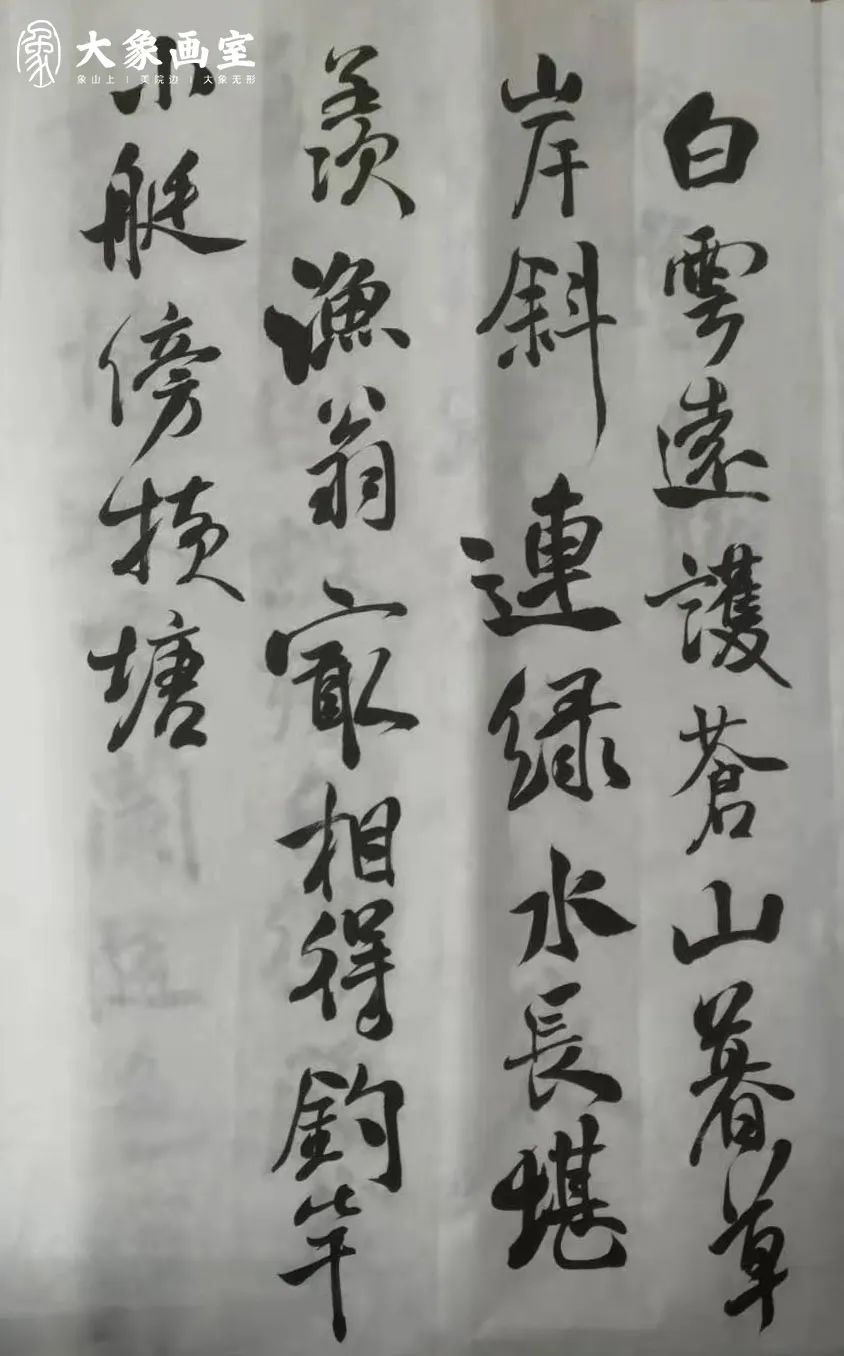 白雲遠護蒼山暮草
岸斜連緑水長堪
羨漁翁㝡相得釣竿
小艇傍横塘
大象画室
象山上 | 美院边 | 大象无形